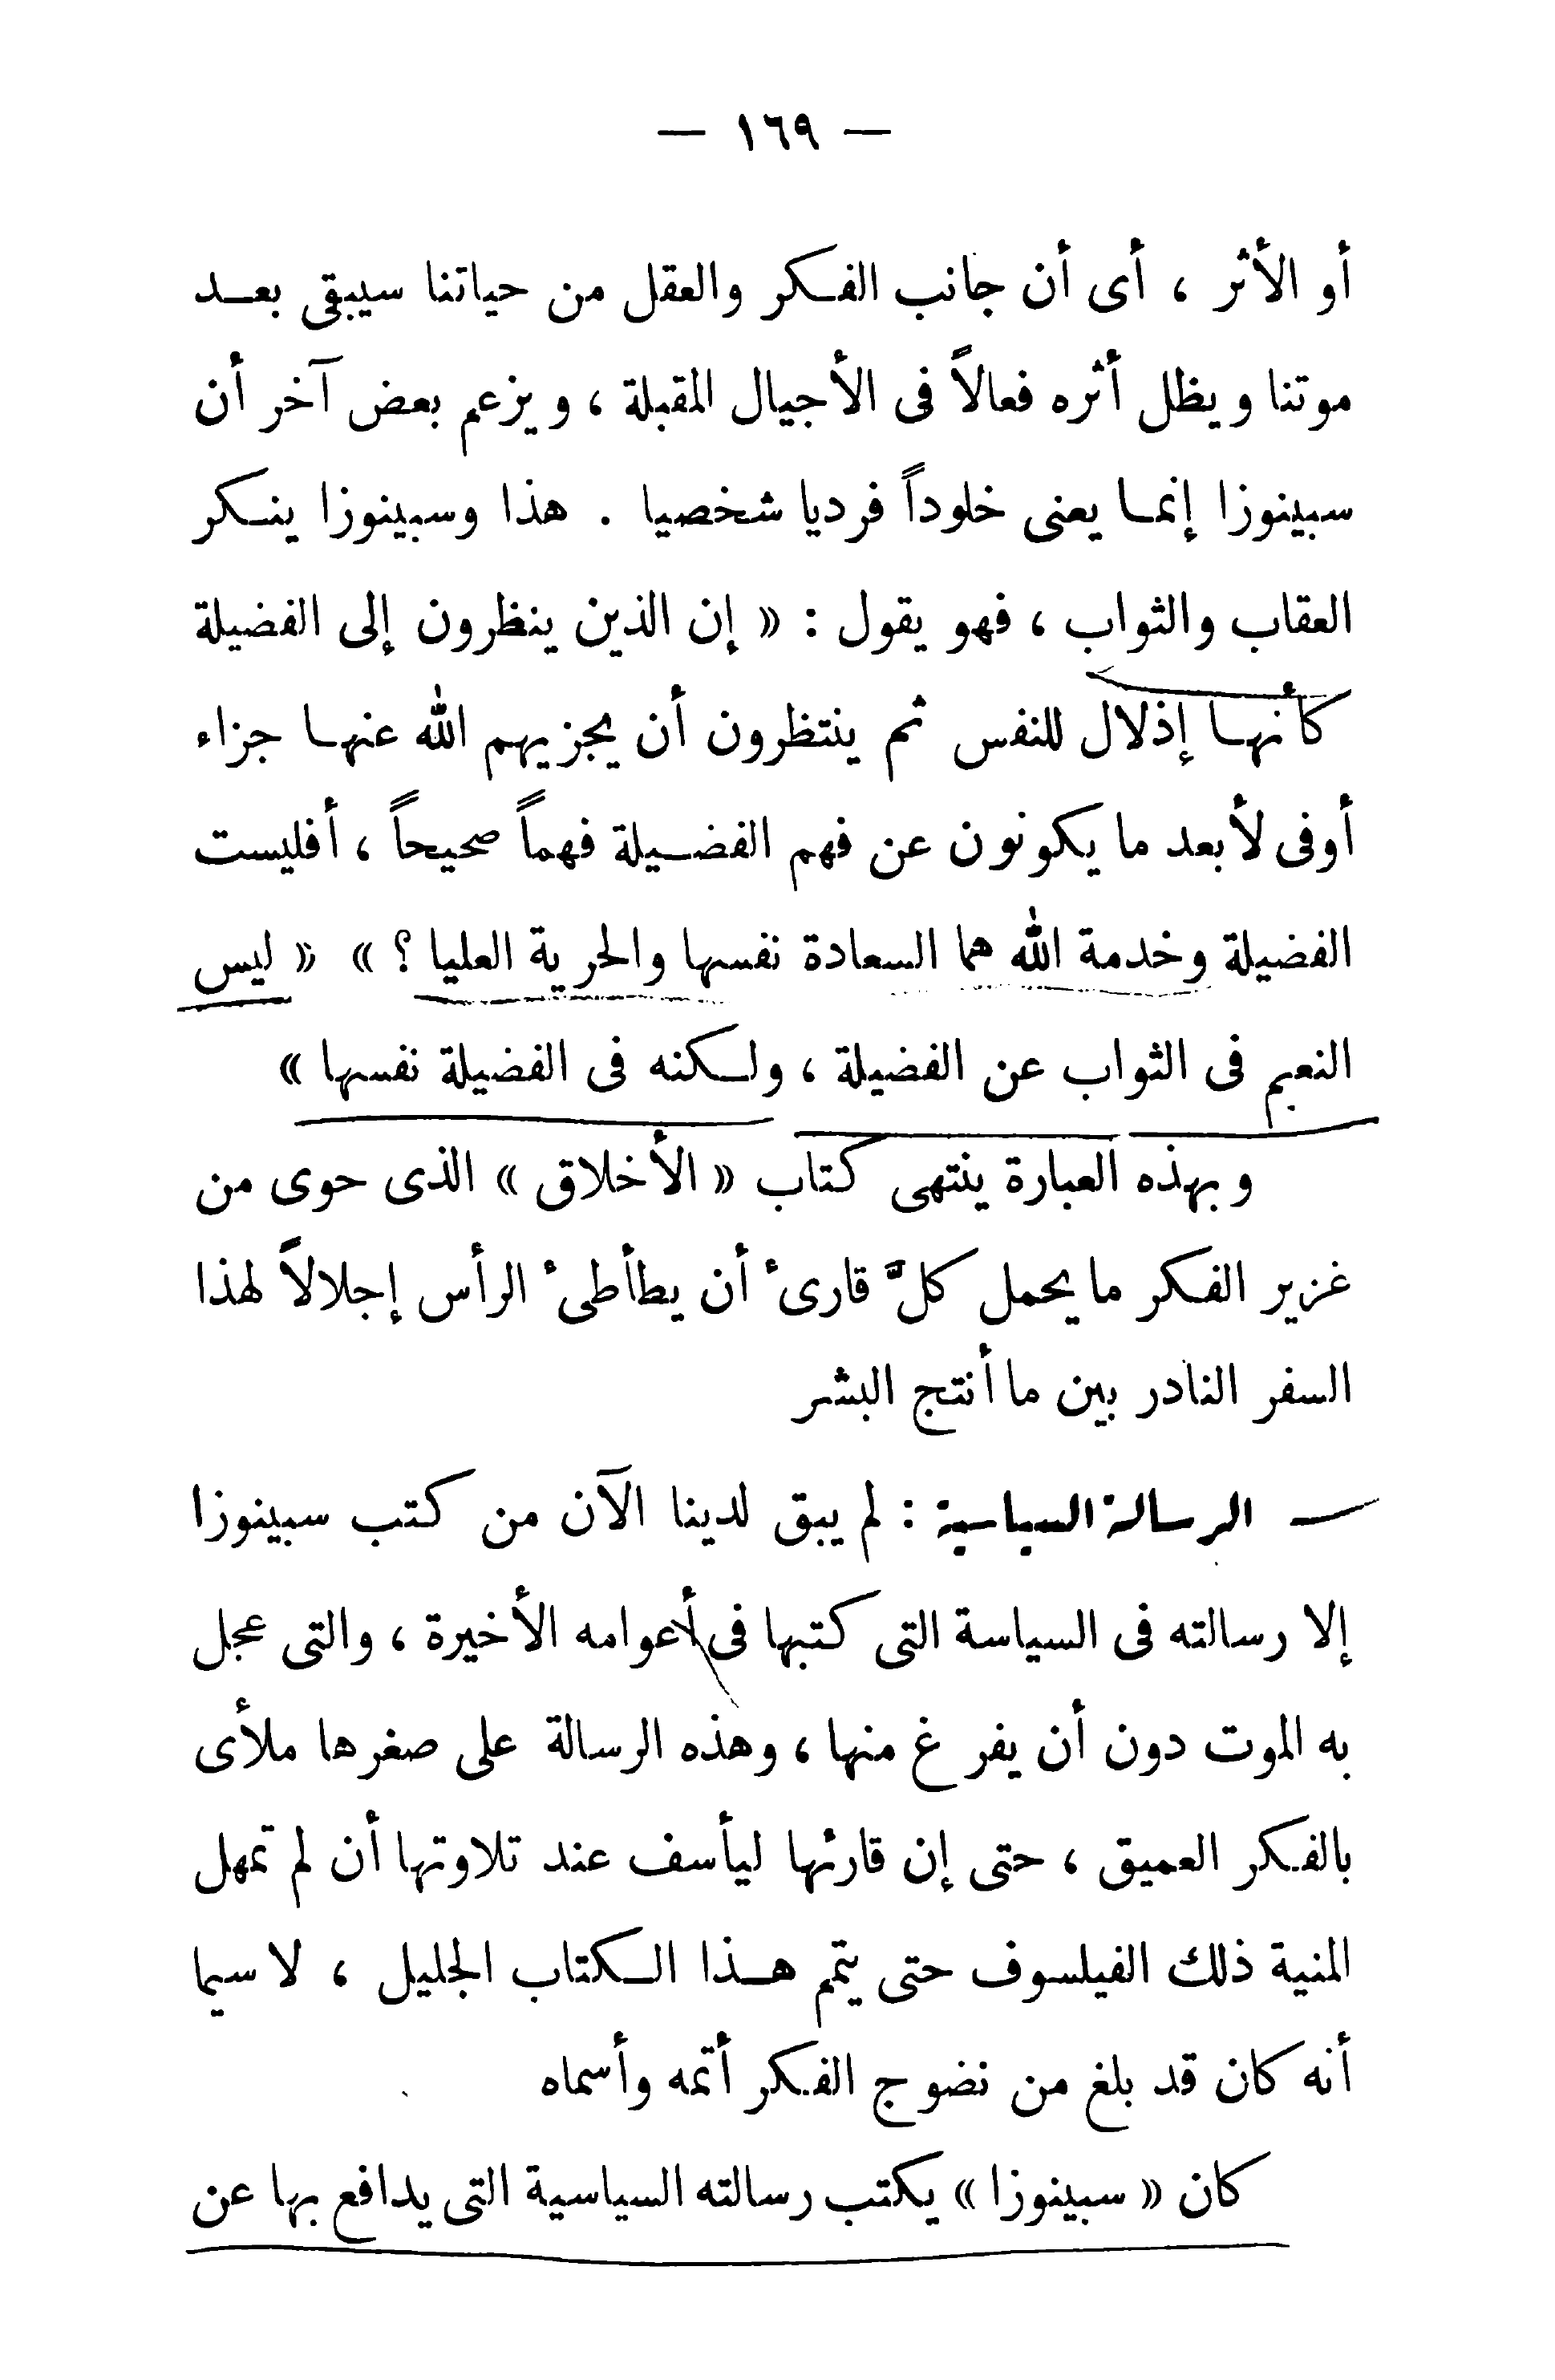 — ١٦٩ —
أو الأثر ، أى أن جانب الفكر والعقل من حياتنا سيبقى بعد
موتنا ويظل أثره فعالاً فى الأجيال المقبلة ، ويزعم بعض آخر أن
سبينوزا إنما يعنى خلوداً فرديا شخصيا . هذا وسبينوزا ينكر
العقاب والثواب ، فهو يقول : « إن الذين ينظرون إلى الفضيلة
كأنها إذلال للنفس ثم ينتظرون أن يجزيهم الله عنها جزاء
أوفى لأبعد ما يكونون عن فهم الفضيلة فهماً صحيحاً ، أفليست
الفضيلة وخدمة الله هما السعادة نفسها والحرية العليا ؟ » « ليس
النعيم فى الثواب عن الفضيلة ، ولكنه فى الفضيلة نفسها »
وبهذه العبارة ينتهى كتاب « الأخلاق » الذى حوى من
غزير الفكر ما يحمل كلَّ قارىء أن يطأطىء الرأس إجلالاً لهذا
السفر النادر بين ما أنتج البشر
الرسالة السياسية : لم يبق لدينا الآن من كتب سبينوزا
إلا رسالته فى السياسة التى كتبها فى أعوامه الأخيرة ، والتى عجل
به الموت دون أن يفرغ منها ، وهذه الرسالة على صغرها ملأى
بالفكر العميق ، حتى إن قارئها ليأسف عند تلاوتها أن لم تمهل
المنية ذلك الفيلسوف حتى يتم هذا الكتاب الجليل ، لا سيما
أنه كان قد بلغ من نضوج الفكر أتمه وأسماه
كان « سبينوزا » يكتب رسالته السياسية التى يدافع بها عن